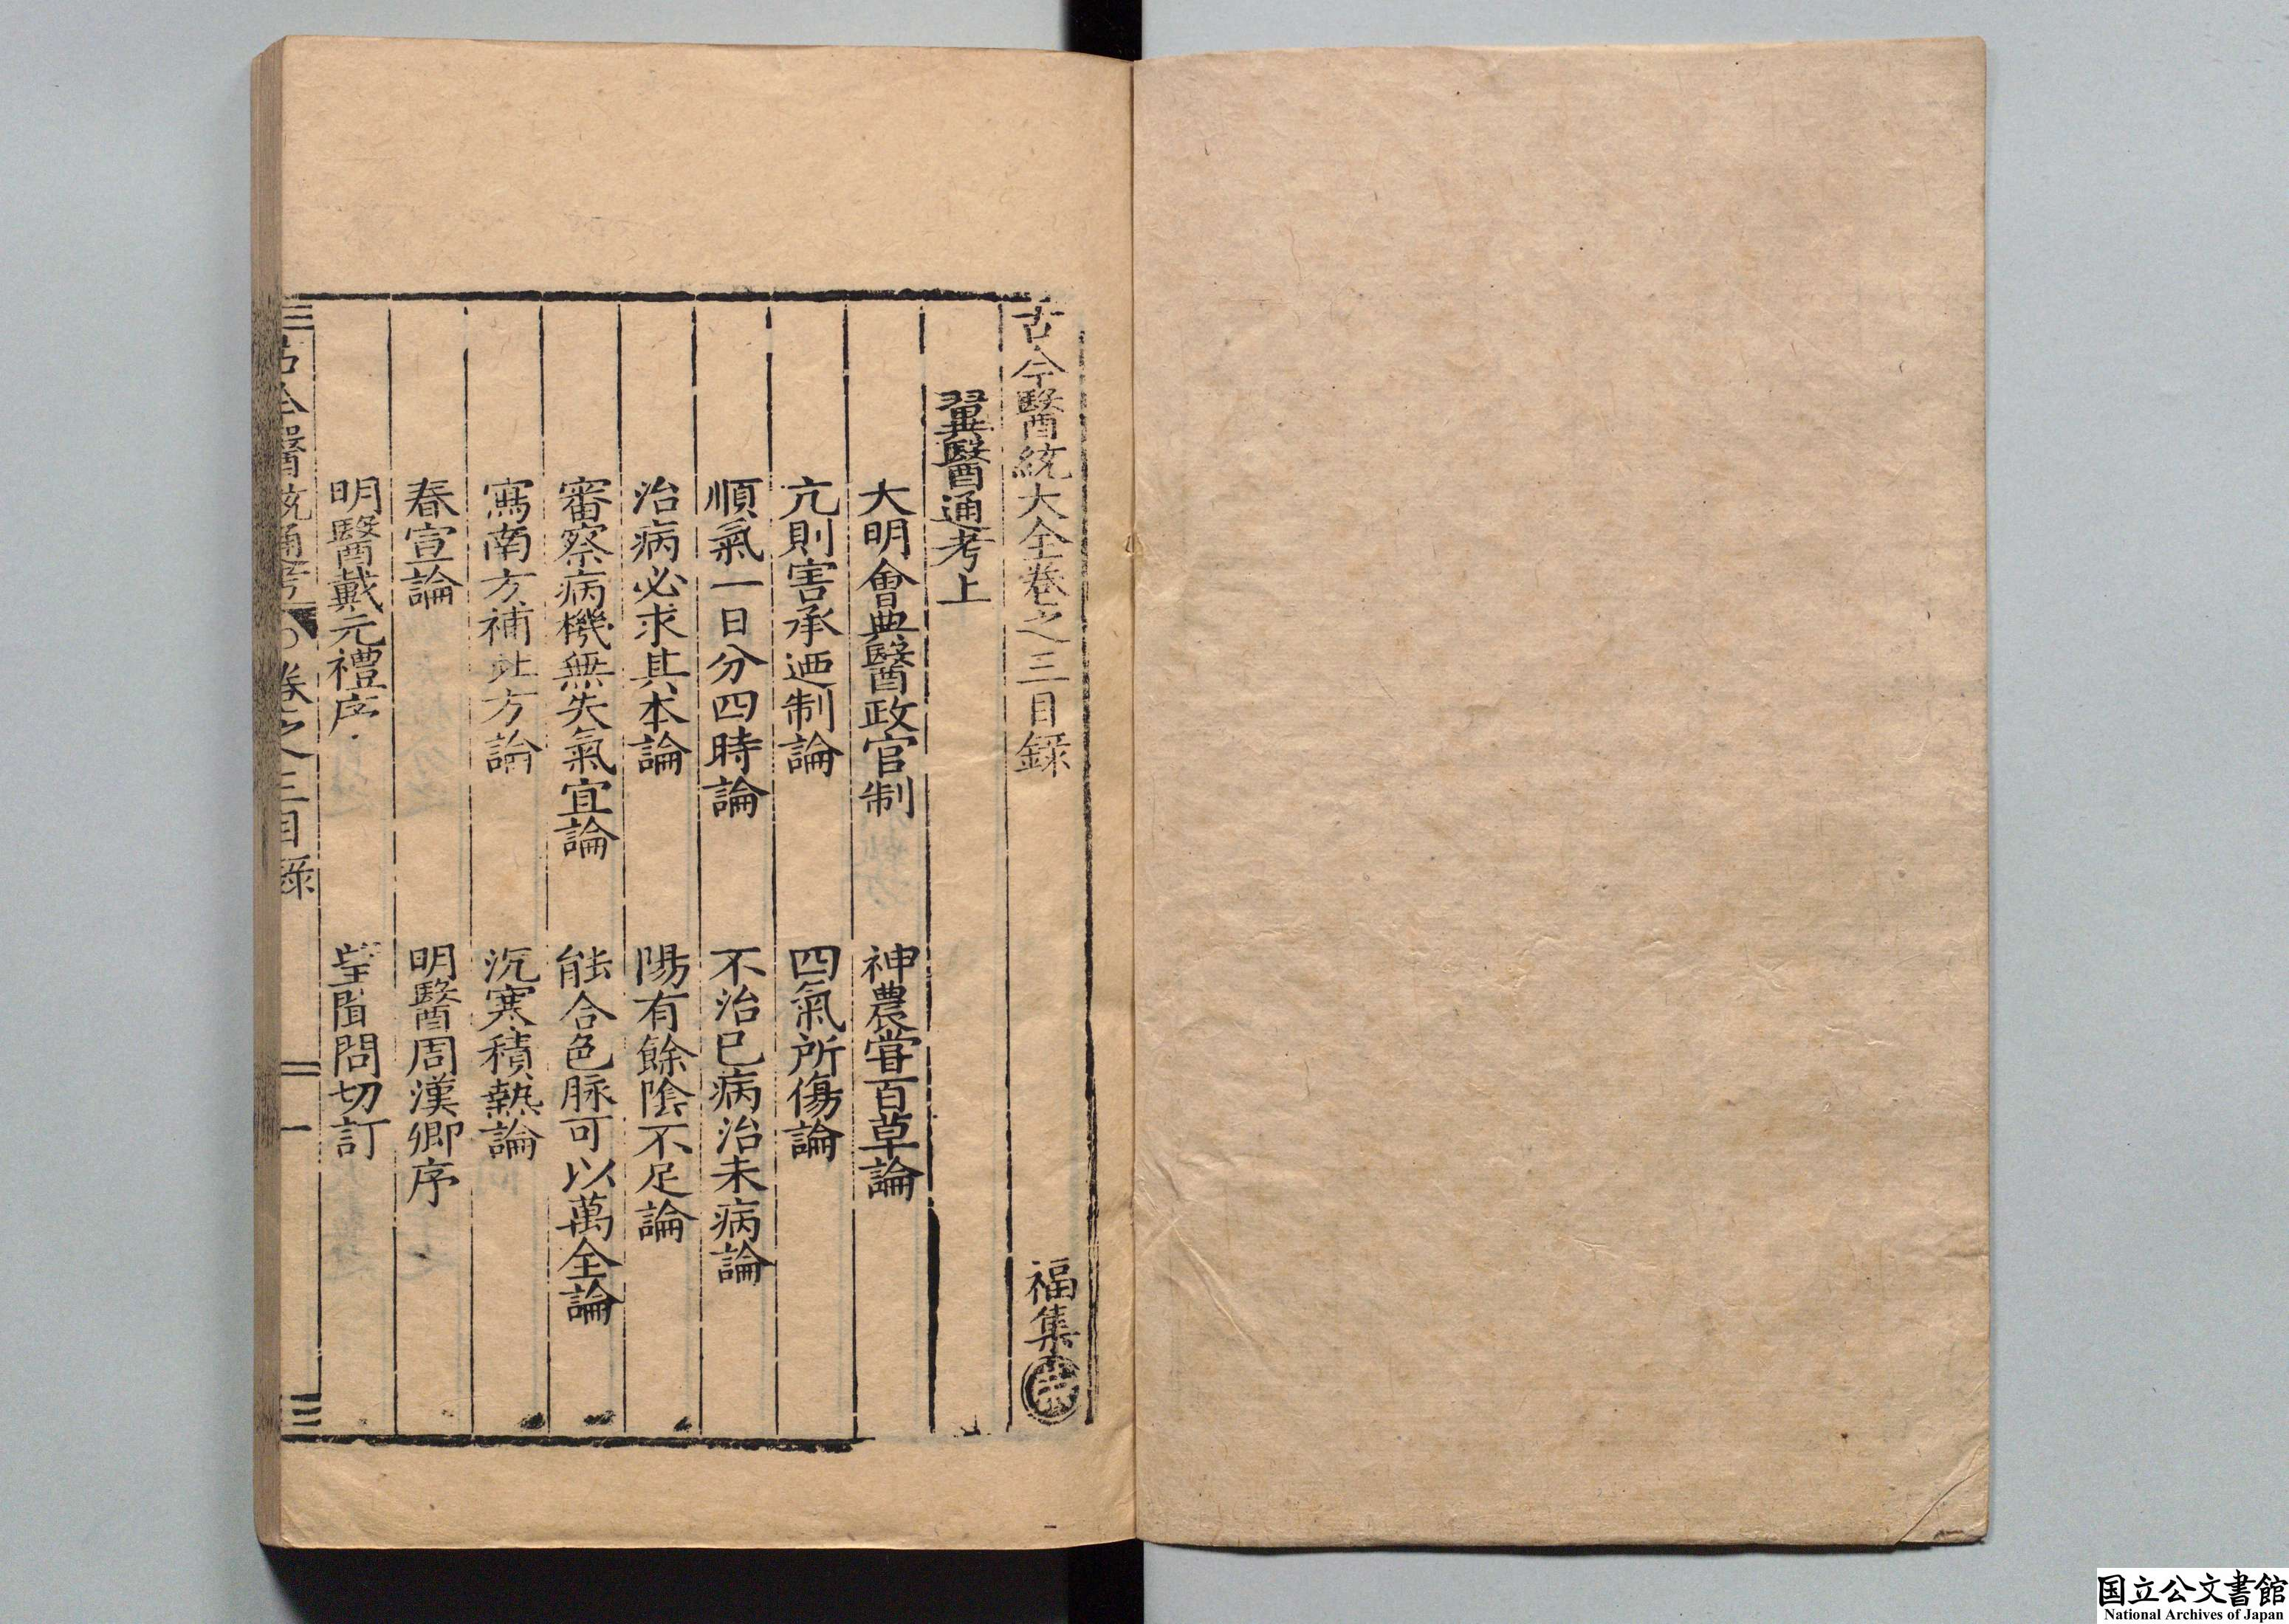 古今醫統大全卷之三目錄
福集
翼醫通考上
大明會典醫政官制
神農嘗百草論
亢則害承迺制論
四氣所傷論
順氣一日分四時論
不治已病治未病論
治病必求其本論
陽有餘陰不足論
審察病機無失氣宜論
能合色脉可以萬全論
寫南方補北方論
沉寒積熱論
春宣論
明醫周漢卿序
明醫戴元禮序
望聞問切訂
古今醫統通考
卷之三目錄
一
国立公文書館
National Archives of Japan